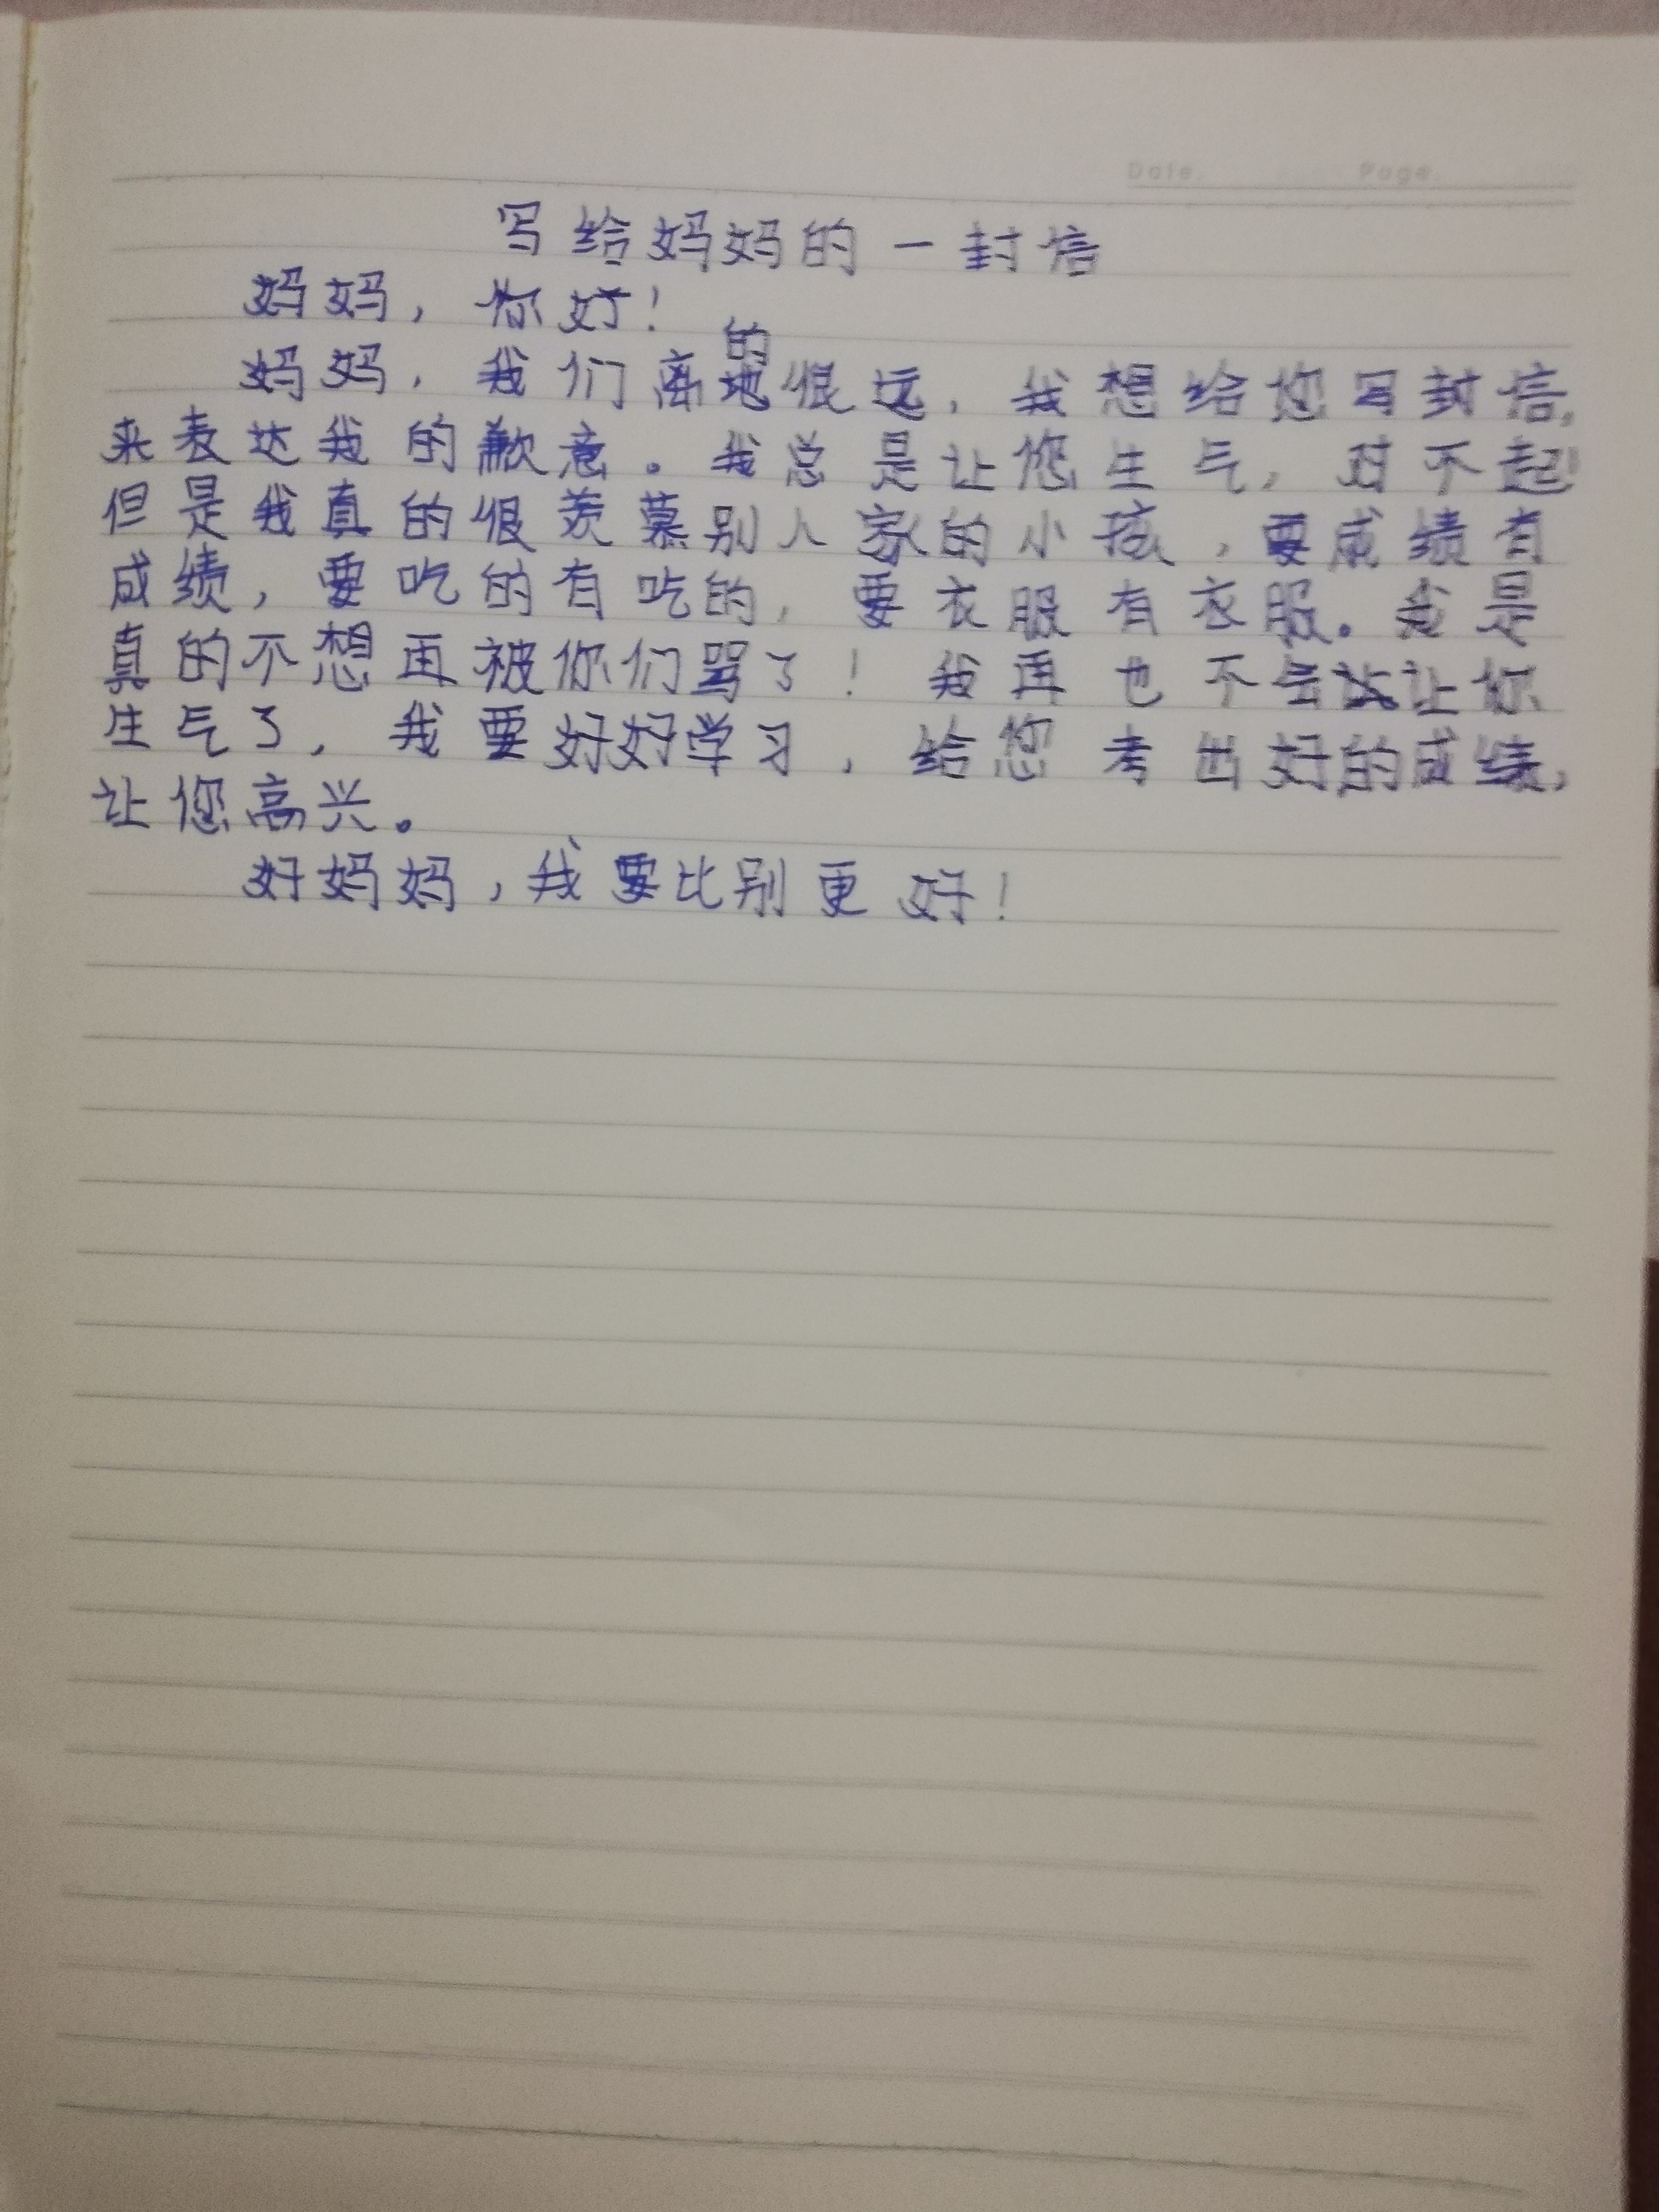 Date. Page.
写给妈妈的一封信
妈妈，你好！
的
妈妈，我们离地很远，我想给您写封信，
来表达我的歉意。我总是让您生气，对不起！
但是我真的很羡慕别人家的小孩，要成绩有
成绩，要吃的有吃的，要衣服有衣服。我是
真的不想再被你们骂了！我再也不会让让你
生气了，我要好好学习，给您考出好的成绩，
让您高兴。
好妈妈，我要比别更好！